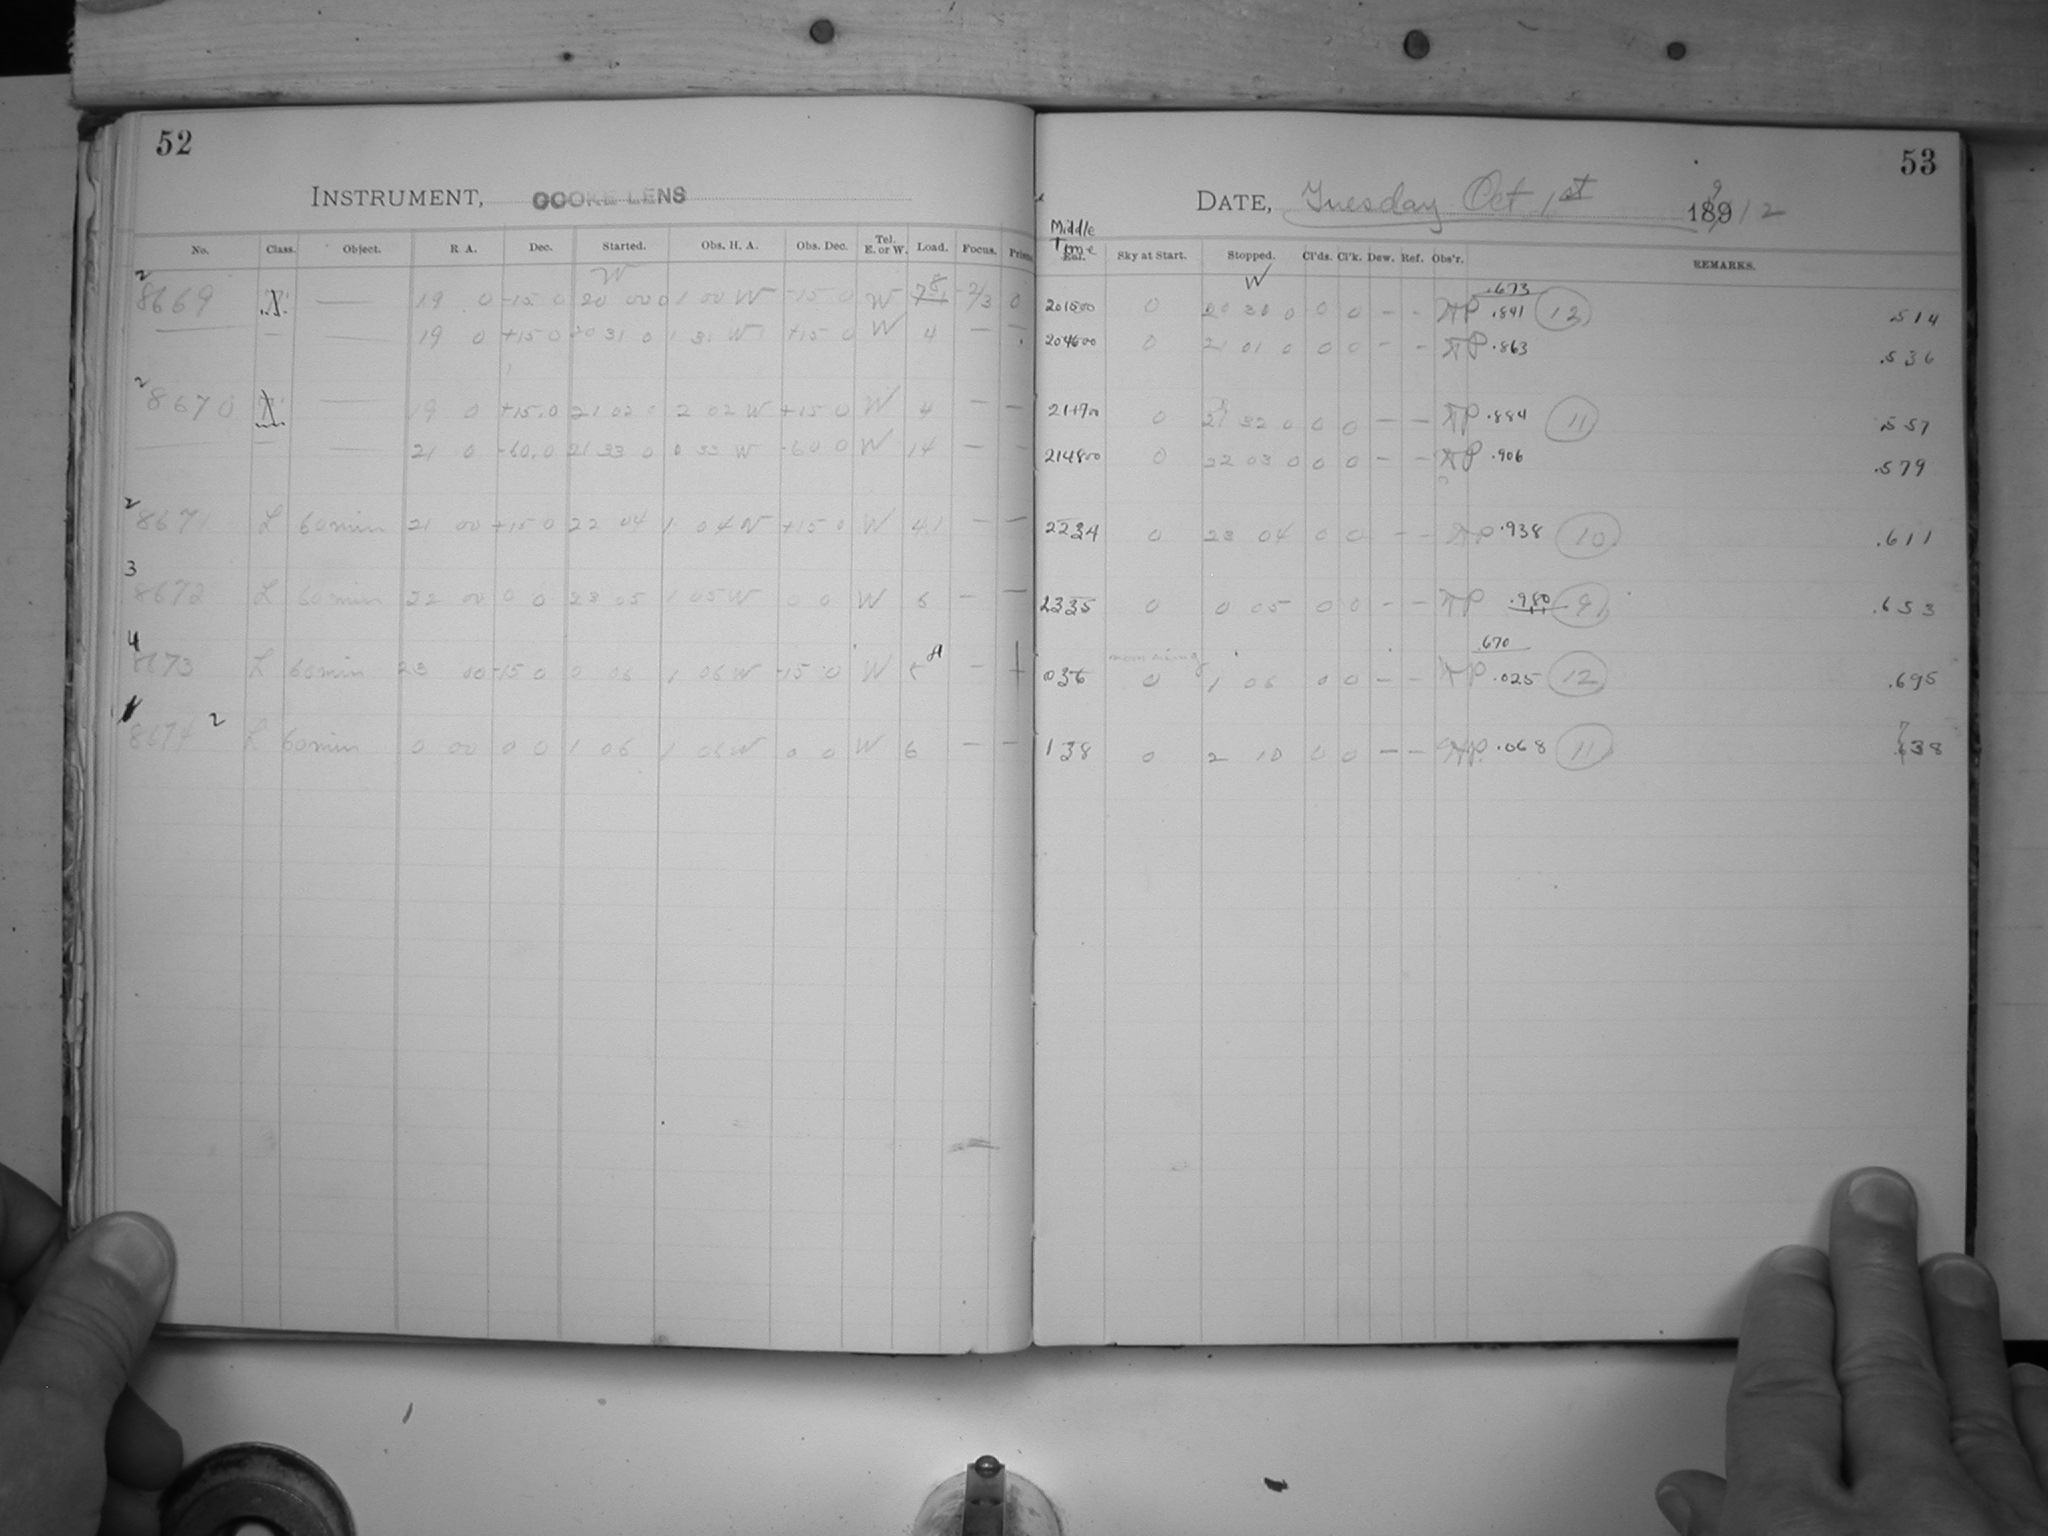 52
INSTRUMENT, COOKE LENS
No. Class. Object. R A. Dec. Started. Obs. H. A. Obs. Dec. Tel. E. or W. Load. Focus. Prism
W
2
8669 — 19 0 -15 0 20 00 0 1 00 W -15 0 W -2/3 0
— — — 19 0 +15 0 20 31 0 1 31 W +15 0 W 4 — —
2
8670 — 19 0 +15.0 21 02 0 2 02 W +15 0 W 4 — —
— — — 21 0 -60.0 21 33 0 0 33 W -60 0 W 14 — —
2
8671 L 60 min 21 00 +15 0 22 04 1 04 W +15 0 W 4.1 — —
3
8672 L 60 min 22 00 0 0 23 05 1 05 W 0 0 W 6 — —
4
8673 L 60 min 23 00 -15 0 0 06 1 06 W -15 0 W —
8674 2 L 60 min 0 00 0 0 1 06 1 06 W 0 0 W 6 — —
53
DATE, Tuesday Oct 1st 1912
Middle Time
Sky at Start. Stopped. Cl'ds. Cl'k. Dew. Ref. Obs'r. REMARKS.
W
.673
201500 0 20 30 0 0 0 - - .841 12 .514
204600 0 21 01 0 0 0 - - .863 .536
211700 0 21 32 0 0 0 - - .884 11 .557
214800 0 22 03 0 0 0 - - .906 .579
2234 0 23 04 0 0 - - .938 10 .611
2335 0 0 05 0 0 - - .980 9 .653
morning
.670
036 0 1 06 0 0 - - .025 12 .695
138 0 2 10 0 0 - - .068 11 738